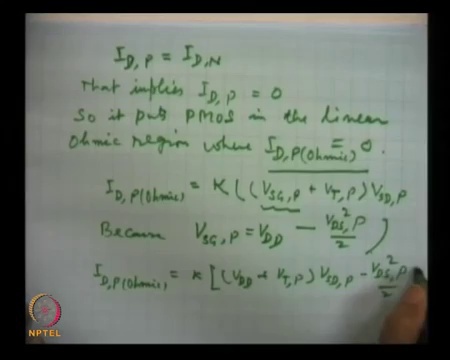 I_{D,P} = I_{D,N}
That implies I_{D,P} = 0
So it puts PMOS in the linear
Ohmic region where I_{D,P(Ohmic)} = 0.
I_{D,P(Ohmic)} = K((V_{SG,P} + V_{T,P}) V_{SD,P}
Because V_{SG,P} = V_{DD} - V_{DS,P}^2/2)
I_{D,P(Ohmic)} = K[(V_{DD} + V_{T,P}) V_{SD,P} - V_{DS,P}^2/2
NPTEL